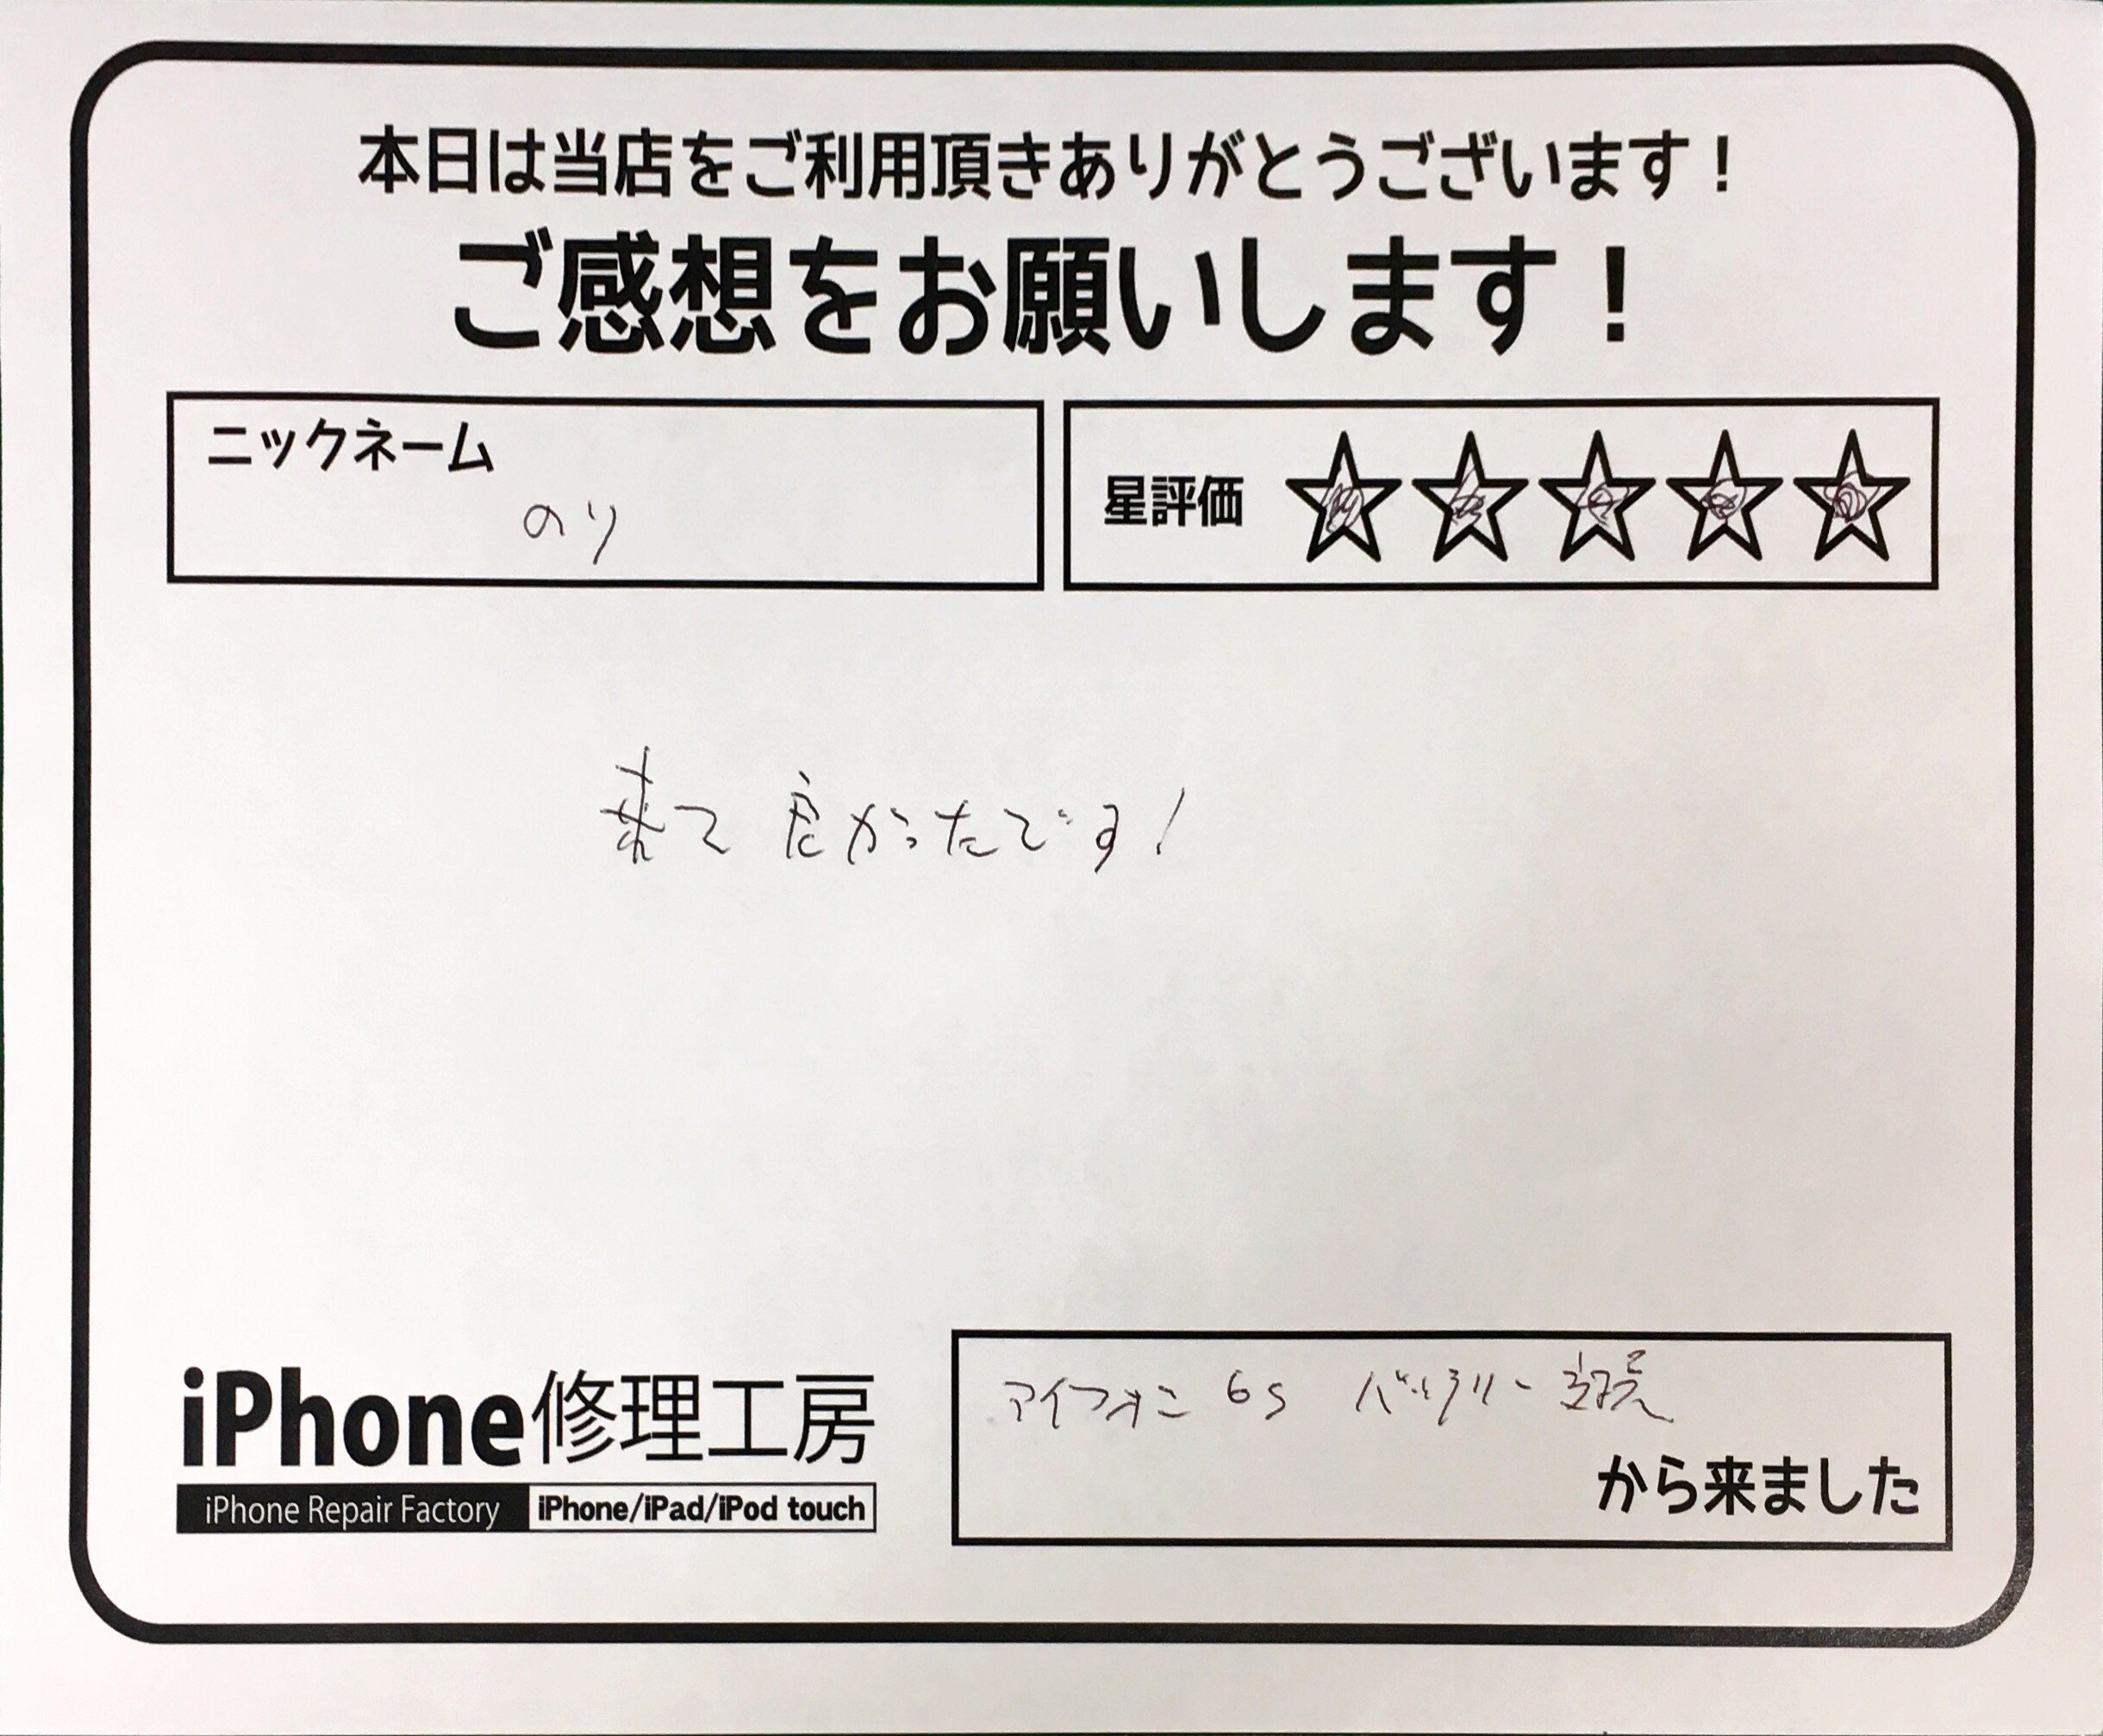 本日は当店をご利用頂きありがとうございます！
ご感想をお願いします！
ニックネーム
のり
星評価 ☆☆☆☆☆
来て 良かったです！
アイフォン 6s バッテリー
から来ました
iPhone修理工房
iPhone Repair Factory iPhone/iPad/iPod touch